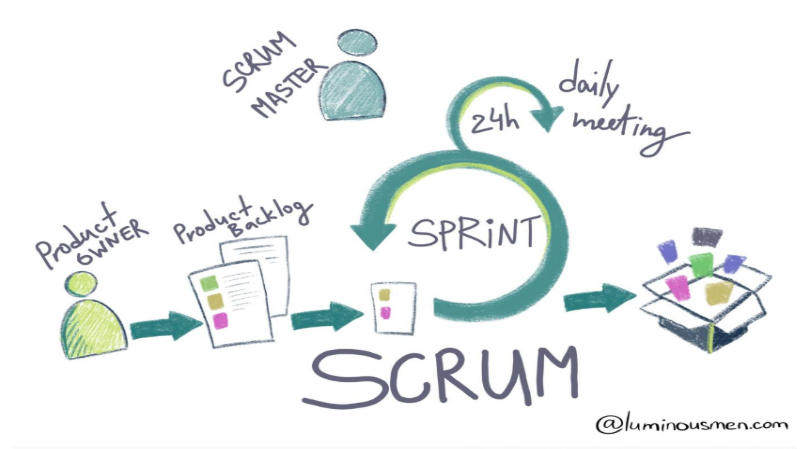 SCRUM
MASTER
daily
meeting
24h
Product
OWNER
Product
Backlog
SPRiNT
SCRUM
@luminousmen.com